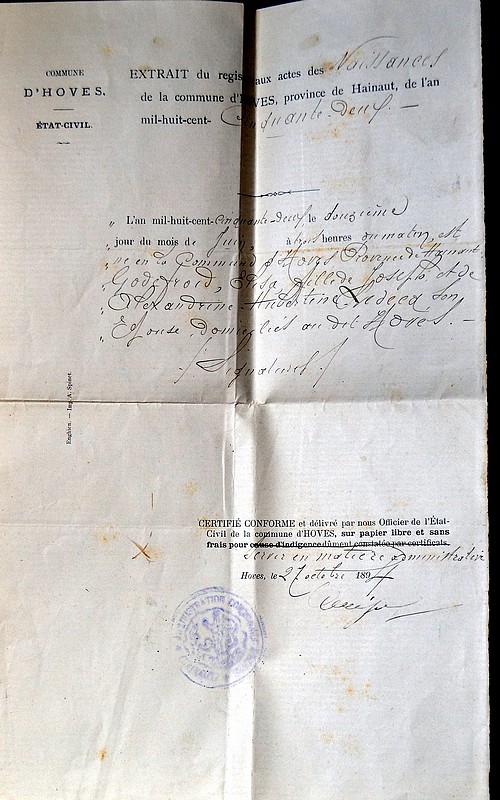 COMMUNE
D'HOVES.
ÉTAT-CIVIL.
EXTRAIT du regis aux actes des Naissances
de la commune d'HOVES, province de Hainaut, de l'an
mil-huit-cent- Cinquante-deux. —
L'an mil-huit-cent-cinquante-deux le douzième
jour du mois de Juin, à trois heures du matin est
né en la Commune d'Hoves Province de Hainaut,
Godefroid, Elisa, fille de Joseph et de
Alexandrine Hubertine Ledecq son
Epouse, domiciliés au dit Hoves. —
/ Signatures /
Enghien. — Imp. A. Spinet.
CERTIFIÉ CONFORME et délivré par nous Officier de l'État-
Civil de la commune d'HOVES, sur papier libre et sans
frais pour cause d'indigence dûment constatée par certificats.
servir en matière administrative
Hoves, le 27 octobre 189
ADMINISTRATION COMMUNALE